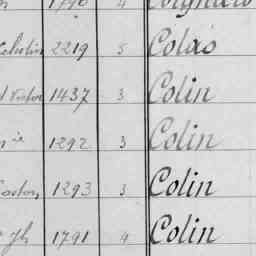 1790 4
2219 5 Colas
1437 3 Colin
1292 3 Colin
1293 3 Colin
Jh 1791 4 Colin